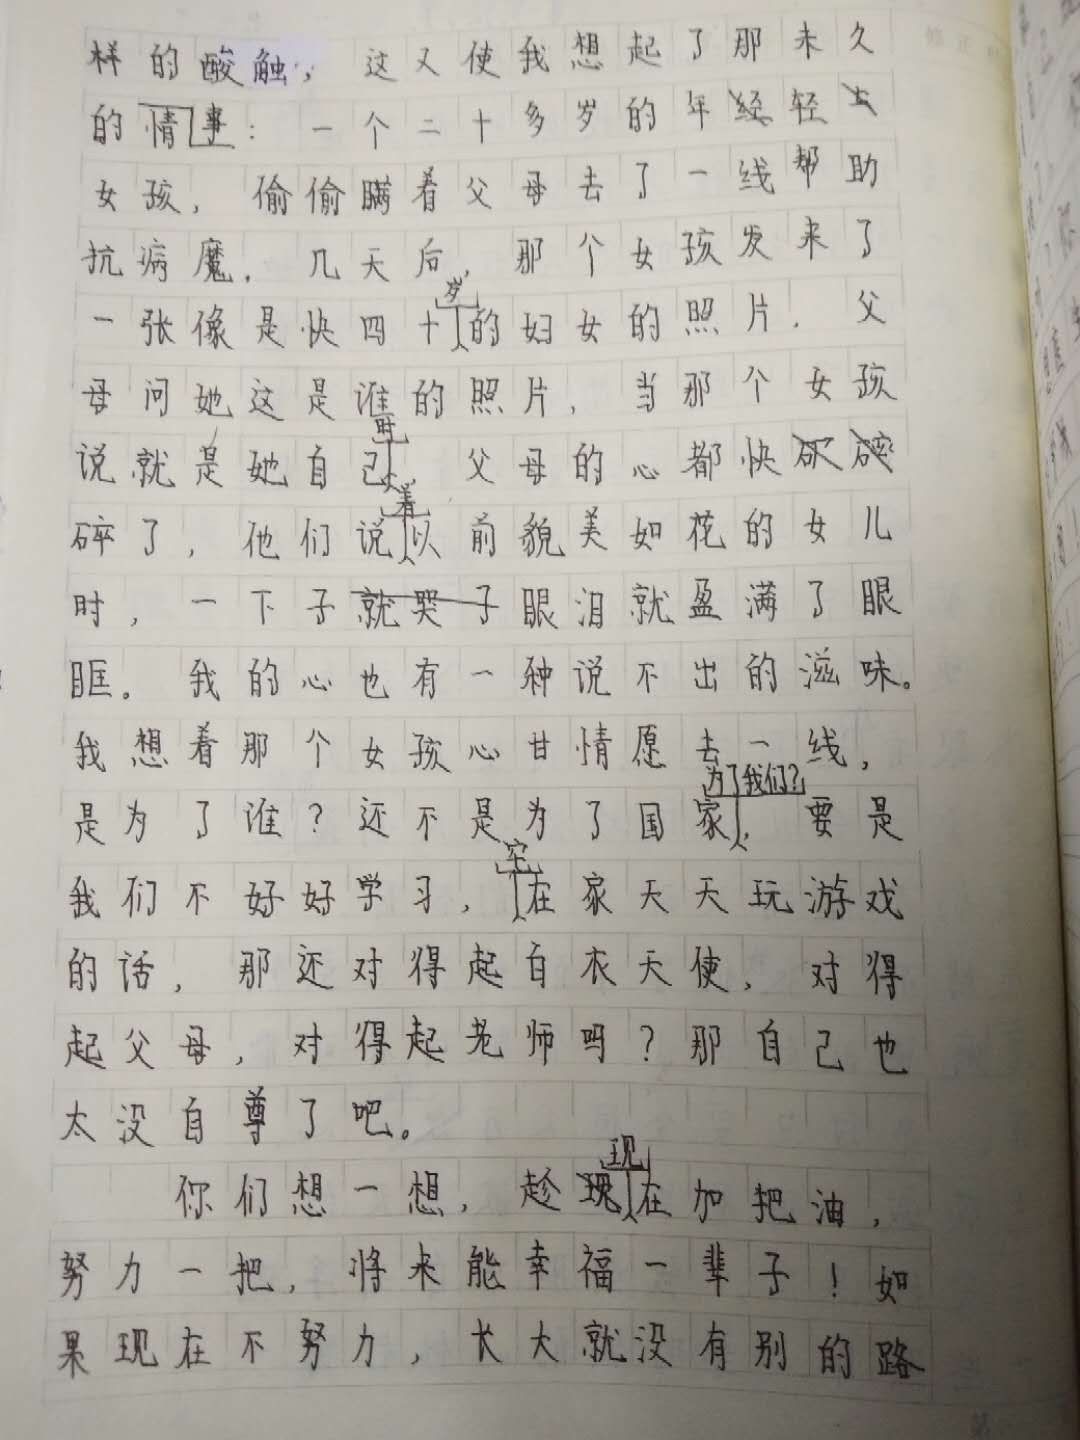 样的酸触，这又使我想起了那未久
的情事：一个二十多岁的年轻
女孩，偷偷瞒着父母去了一线帮助
抗病魔．几天后，那个女孩发来了
一张像是快四十岁的妇女的照片．父
母问她这是谁的照片，当那个女孩
说就是她自己时，父母的心都快
碎了，他们说着以前貌美如花的女儿
时，一下子眼泪就盈满了眼
眶。我的心也有一种说不出的滋味。
我想着那个女孩心甘情愿去一线，
是为了谁？还不是为了国家为了我们？，要是
我们不好好学习，宅在家天天玩游戏
的话，那还对得起白衣天使，对得
起父母，对得起老师吗？那自己也
太没自尊了吧。
你们想一想，趁现在加把油，
努力一把，将来能幸福一辈子！如
果现在不努力，长大就没有别的路